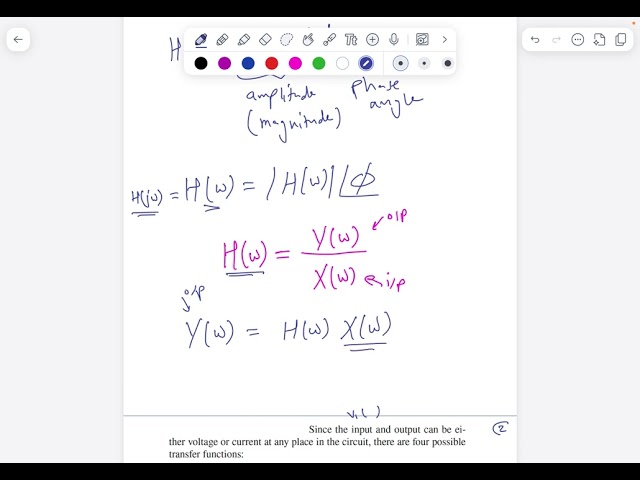 H
amplitude
(magnitude)
phase
angle
H(jω) = H(ω) = |H(ω)| ∠ϕ
H(ω) = Y(ω) / X(ω)
o/p
i/p
o/p
Y(ω) = H(ω) X(ω)
2
Since the input and output can be ei-
ther voltage or current at any place in the circuit, there are four possible
transfer functions: